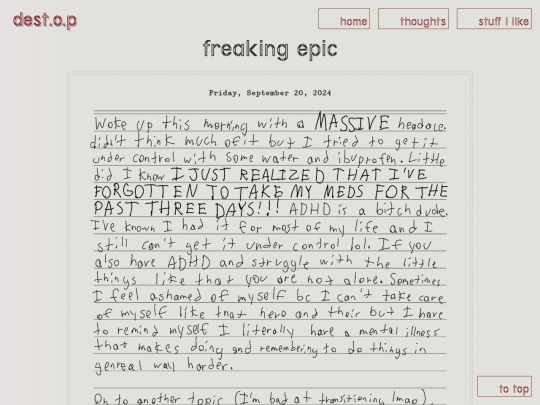 dest.o.p
home
thoughts
stuff I like
freaking epic
Friday, September 20, 2024
Woke up this morning with a MASSIVE headace.
didn't think much of it but I tried to get it
under control with some water and ibuprofen. Little
did I know I JUST REALIZED THAT I'VE
FORGOTTEN TO TAKE MY MEDS FOR THE
PAST THREE DAYS!!! ADHD is a bitch dude.
I've known I had it for most of my life and I
still can't get it under control lol. If you
also have ADHD and struggle with the little
things like that you are not alone. Sometimes
I feel ashamed of myself bc I can't take care
of myself like that here and their but I have
to remind myself I literally have a mental illness
that makes doing and remembering to do things in
genreal way harder.
On to another topic (I'm bad at transitioning lmao),
to top